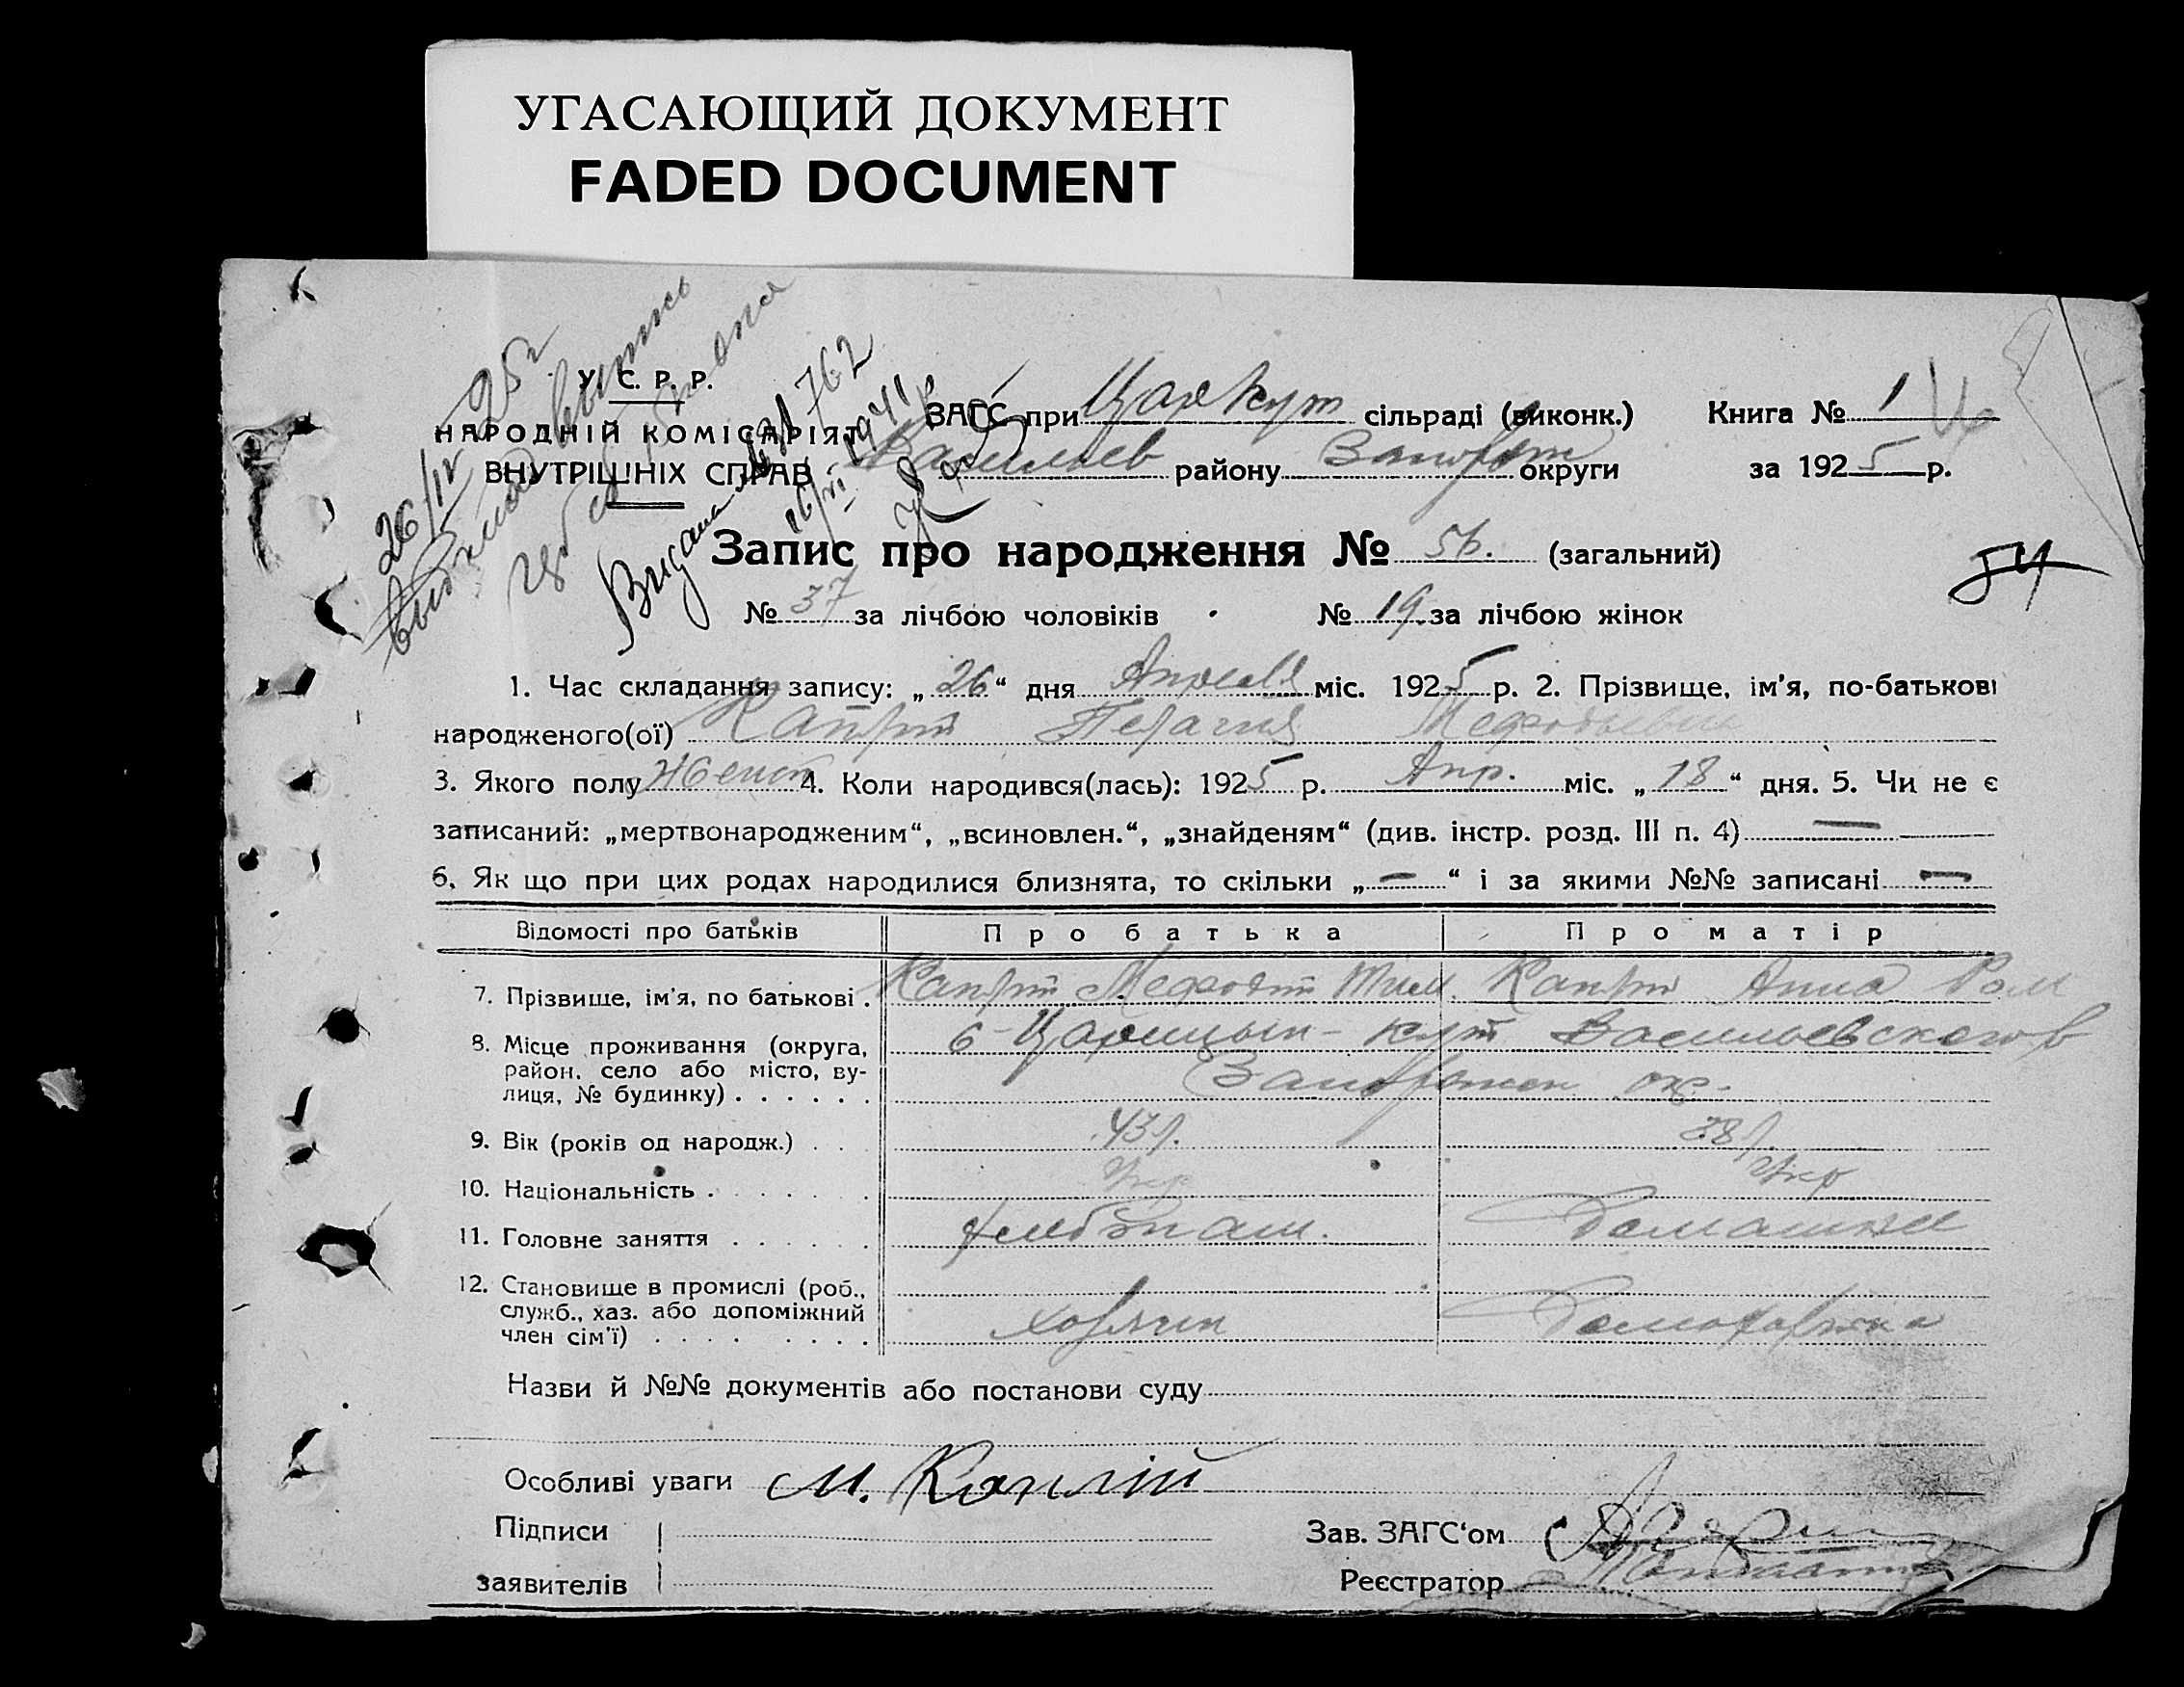 УГАСАЮЩИЙ ДОКУМЕНТ
FADED DOCUMENT
У. С. Р. Р.
НАРОДНІЙ КОМІСАРІЯТ
ВНУТРІШНІХ СПРАВ
26/IV 25
Видана 762
16/VI 1941
ЗАГС при Царкут сільраді (виконк.) Книга № 1
Васильев району Запорож округи за 1925 р.
Запис про народження № 56. (загальний)
54
№ 37 за лічбою чоловіків № 19. за лічбою жінок
1. Час складання запису: „26“ дня Апреля міс. 1925 р. 2. Прізвище, ім'я, по-батькові
народженого(ої) Пелагия
3. Якого полу Женск 4. Коли народився(лась): 1925 р. Апр. міс. „18“ дня. 5. Чи не є
записаний: „мертвонародженим“, „всиновлен.“, „знайденям“ (див. інстр. розд. III п. 4) —
6. Як що при цих родах народилися близнята, то скільки „—“ і за якими №№ записані —
Відомості про батьків Про батька Про матір
7. Прізвище, ім'я, по батькові . Мефодий Тим. Анна Ром
8. Місце проживання (округа,
район, село або місто, ву-
лиця, № будинку) . . . . . .
с Царицын-кут Васильевского р
Запорожск ок.
9. Вік (років од народж.) . . 43 л. 38 л.
10. Національність . . . . . . . Укр Укр
11. Головне заняття . . . . . . хлебопаш. Домашнее
12. Становище в промислі (роб.,
служб., хаз. або допоміжний
член сім'ї) . . . . . . . .
хозяин Домохозяйка
Назви й №№ документів або постанови суду
Особливі уваги М. Каплій
Підписи
заявителів
Зав. ЗАГС‘ом
Реєстратор